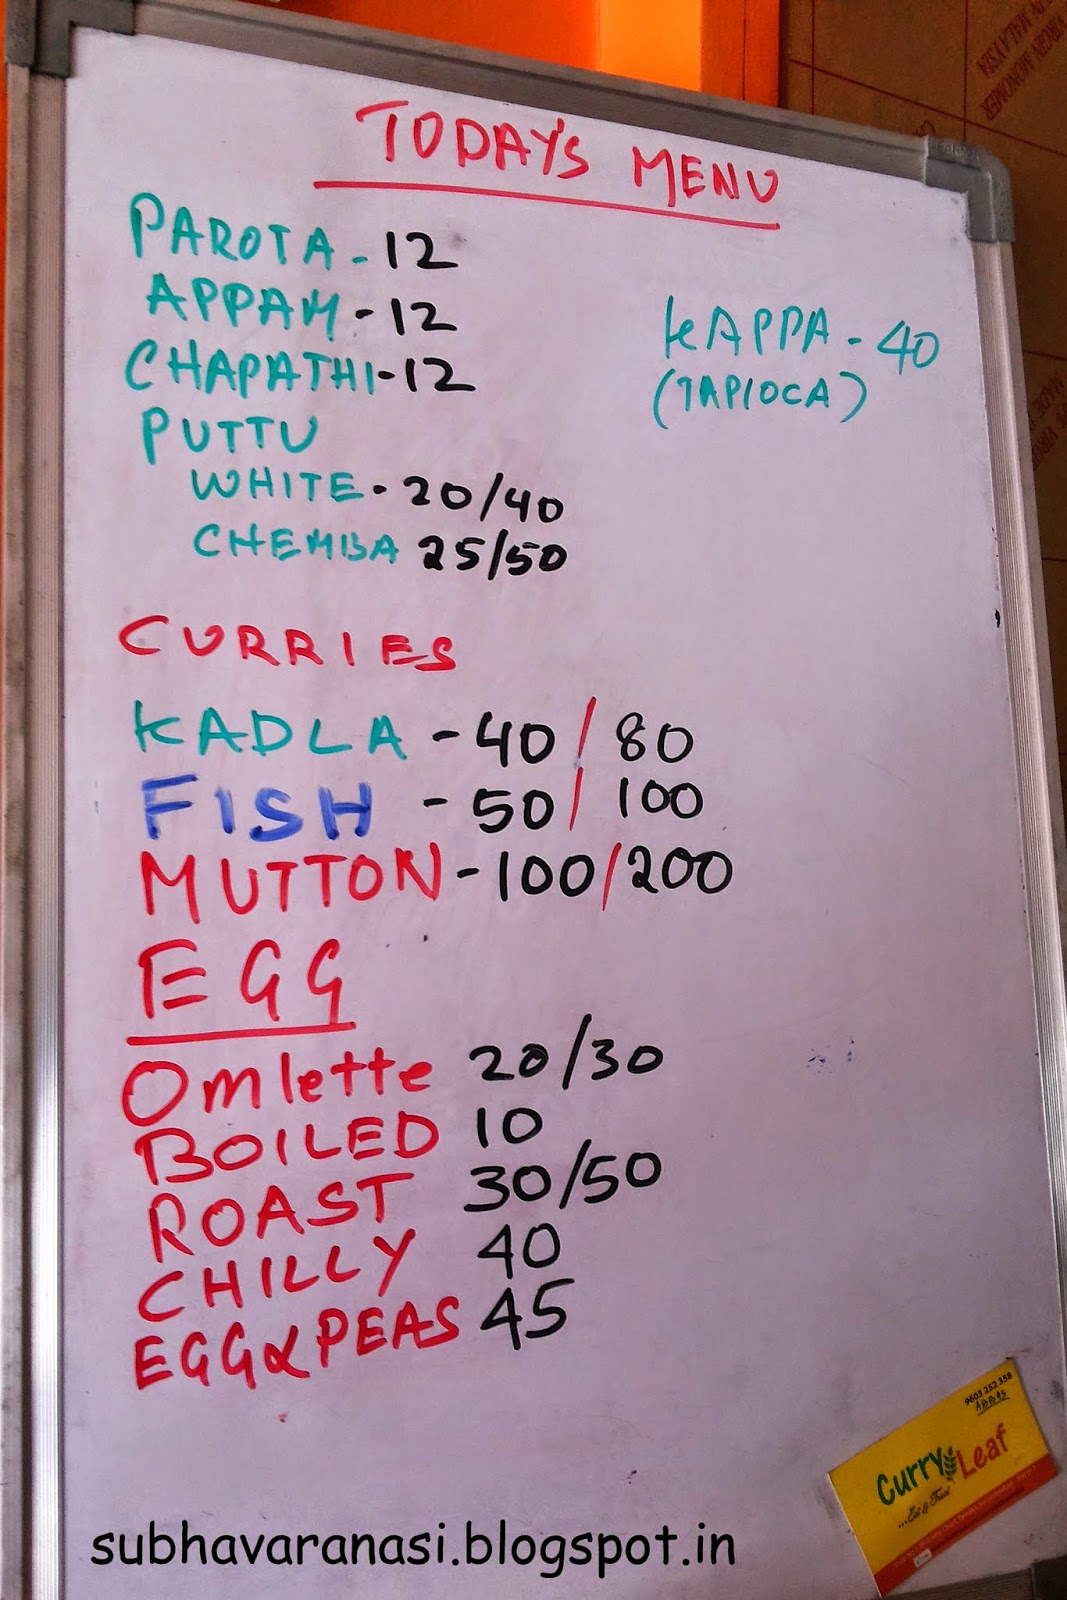 TODAY'S MENU
PAROTA - 12
APPAM - 12
CHAPATHI - 12
PUTTU
WHITE - 20/40
CHEMBA 25/50
KAPPA - 40
(TAPIOCA)
CURRIES
KADLA - 40/80
FISH - 50/100
MUTTON - 100/200
EGG
Omlette 20/30
BOILED 10
ROAST 30/50
CHILLY 40
EGG & PEAS 45
9603 252 358
ABBAS
Curry Leaf
...Eat & Treat
subhavaranasi.blogspot.in
VIRGIN MONOMER
IN MALAYSIA